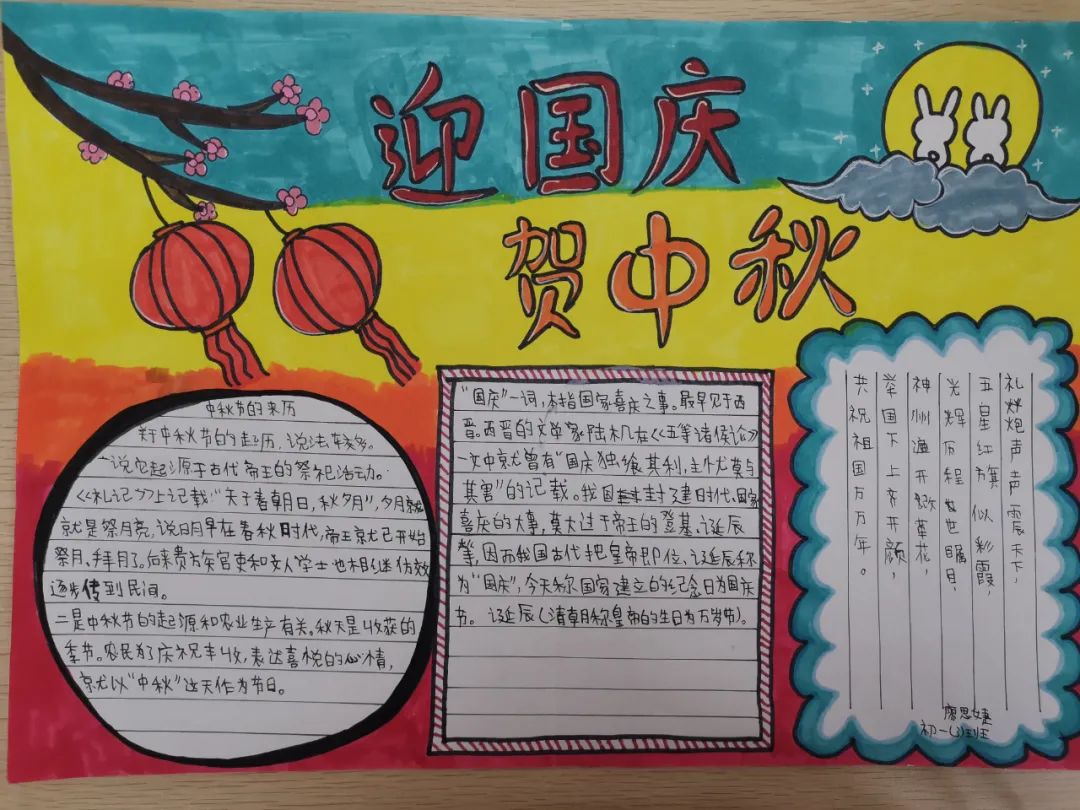 迎国庆
贺中秋
中秋节的来历
关于中秋节的起历，说法较多。
一说它起源于古代帝王的祭祀活动。
《礼记》上记载："天子春朝日，秋夕月"，夕月就
就是祭月亮，说明早在春秋时代，帝王就已开始
祭月、拜月了。后来贵族官吏和文人学士也相继仿效
逐步传到民间。
二是中秋节的起源和农业生产有关。秋天是收获的
季节。农民为了庆祝丰收，表达喜悦的心情，
就以"中秋"这天作为节日。
"国庆"一词，本指国家喜庆之事。最早见于西
晋。西晋的文学家陆机在《五等诸侯论》
一文中就曾有"国庆独飨其利，主忧莫与
其害"的记载。我国封建时代，国家
喜庆的大事，莫大过于帝王的登基、诞辰
等，因而我国古代把皇帝即位、诞辰称
为"国庆"，今天称国家建立的纪念日为国庆
节。诞辰（清朝称皇帝的生日为万岁节）。
礼炮声声震天下，
五星红旗似彩霞，
光辉历程世瞩目，
神州遍开繁华花，
举国下上齐开颜，
共祝祖国万万年。
廖思婕
初一(3)班